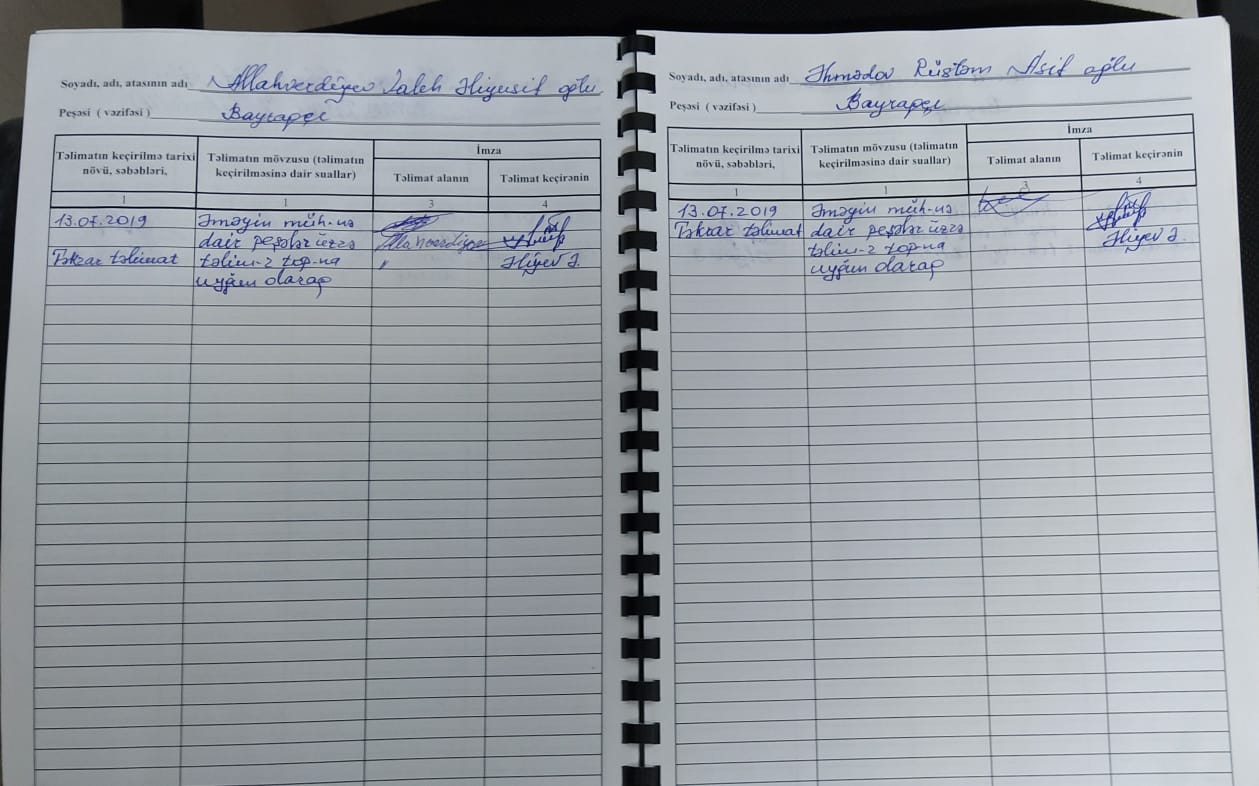 Soyadı, adı, atasının adı Allahverdiyev Əliyusif oğlu
Peşəsi ( vəzifəsi ) Bayraqçı
Təlimatın keçirilmə tarixi növü, səbəbləri,
Təlimatın mövzusu (təlimatın keçirilməsinə dair suallar)
İmza
Təlimat alanın
Təlimat keçirənin
1 1 3 4
13.07.2019 Əməyin müh-nə
dair peşələr üzrə
Təkrar təlimat təlim-z top-na Əliyev Ə.
uyğun olaraq
Soyadı, adı, atasının adı Əhmədov Rüstəm Asif oğlu
Peşəsi ( vəzifəsi ) Bayraqçı
Təlimatın keçirilmə tarixi növü, səbəbləri,
Təlimatın mövzusu (təlimatın keçirilməsinə dair suallar)
İmza
Təlimat alanın
Təlimat keçirənin
1 1 3 4
13.07.2019 Əməyin müh-nə
Təkrar təlimat dair peşələr üzrə Əliyev Ə.
təlim-z top-na
uyğun olaraq